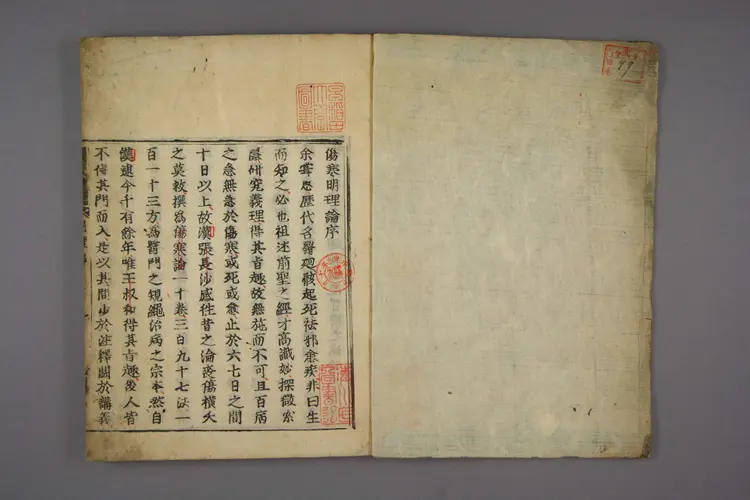 傷寒明理論序
余嘗思歷代名醫迴骸起死祛邪愈疾非曰生
而知之必也祖述前聖之經才高識妙探微索
隱研究義理得其旨趣故無施而不可且百病
之急無急於傷寒或死或愈止於六七日之間
十日以上故漢張長沙感往昔之淪喪傷橫夭
之莫救撰爲傷寒論一十卷三百九十七法一
百一十三方爲醫門之規繩治病之宗本然自
漢逮今千有餘年唯王叔和得其旨趣後人皆
不得其門而入是以其間少於注釋闕於講義